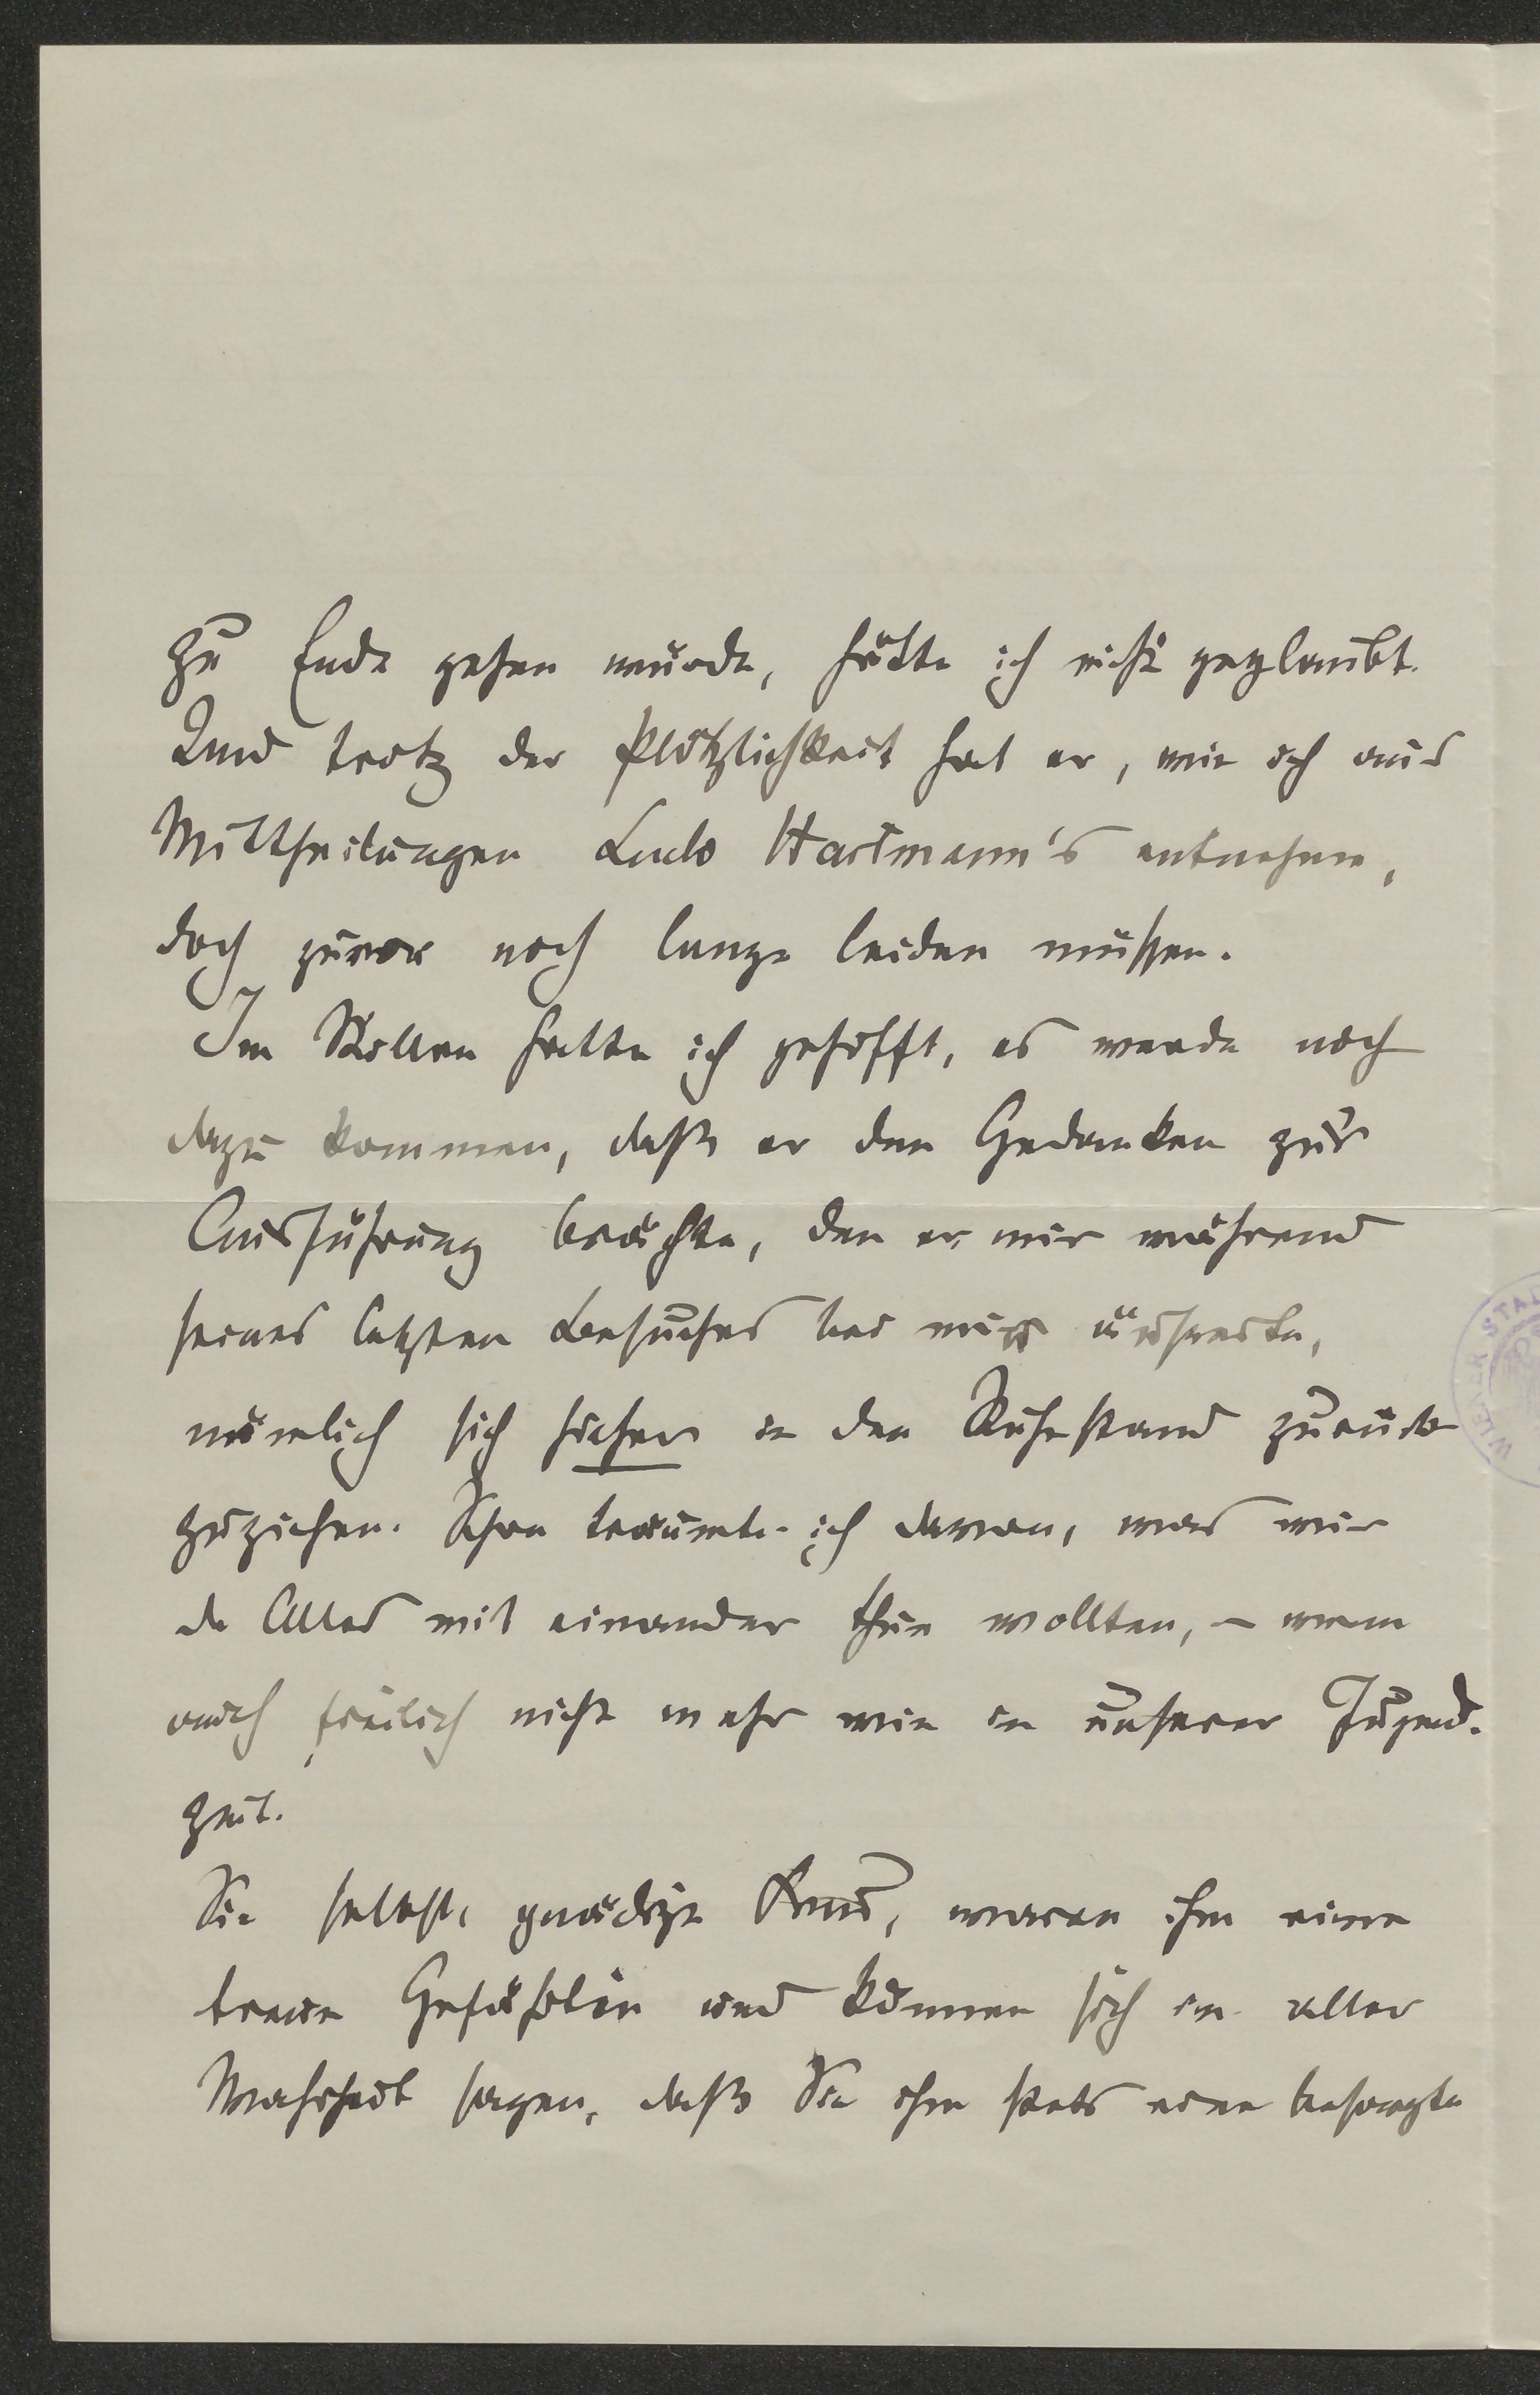 zu Ende gehen würde, hätte ich nicht geglaubt.
Und trotz der Plötzlichkeit hat er, wie ich aus
Mittheilungen Ludo Hartmann's entnehme,
doch zuvor noch lange leiden müssen.
Im Stillen hatte ich gehofft, es werde noch
dazu kommen, daß er den Gedanken zur
Ausführung brächte, den er mir während
seines letzten Besuches bei mir äußerte,
nämlich sich hieher in den Ruhestand zurück
zuziehen. Schon träumte ich davon, was wir
da Alles mit einander thun wollten, – wenn
auch freilich nicht mehr wie in unserer Jugend-
zeit.
Sie selbst, gnädige Frau, waren ihm eine
treue Gefährtin und können sich in aller
Wahrheit sagen, daß Sie ihm stets eine besorgte
WIENER STAD